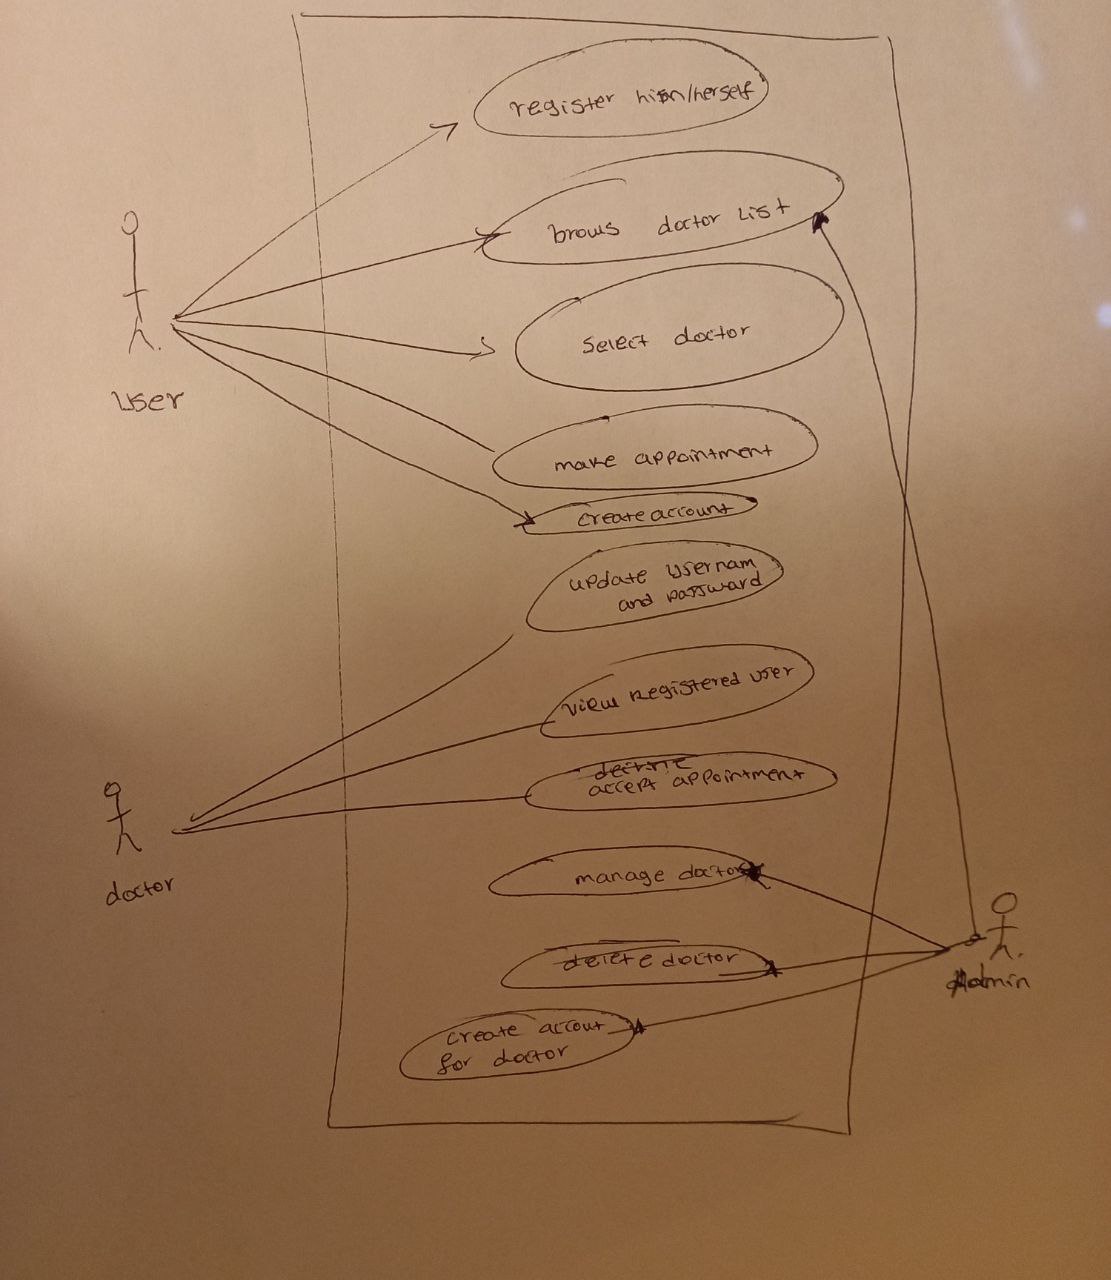 register him/herself
brows doctor List
Select doctor
User
make appointment
create account
update usernam
and password
view registered user
decline
accept appointment
doctor
manage doctor
delete doctor
Admin
create accout
for doctor